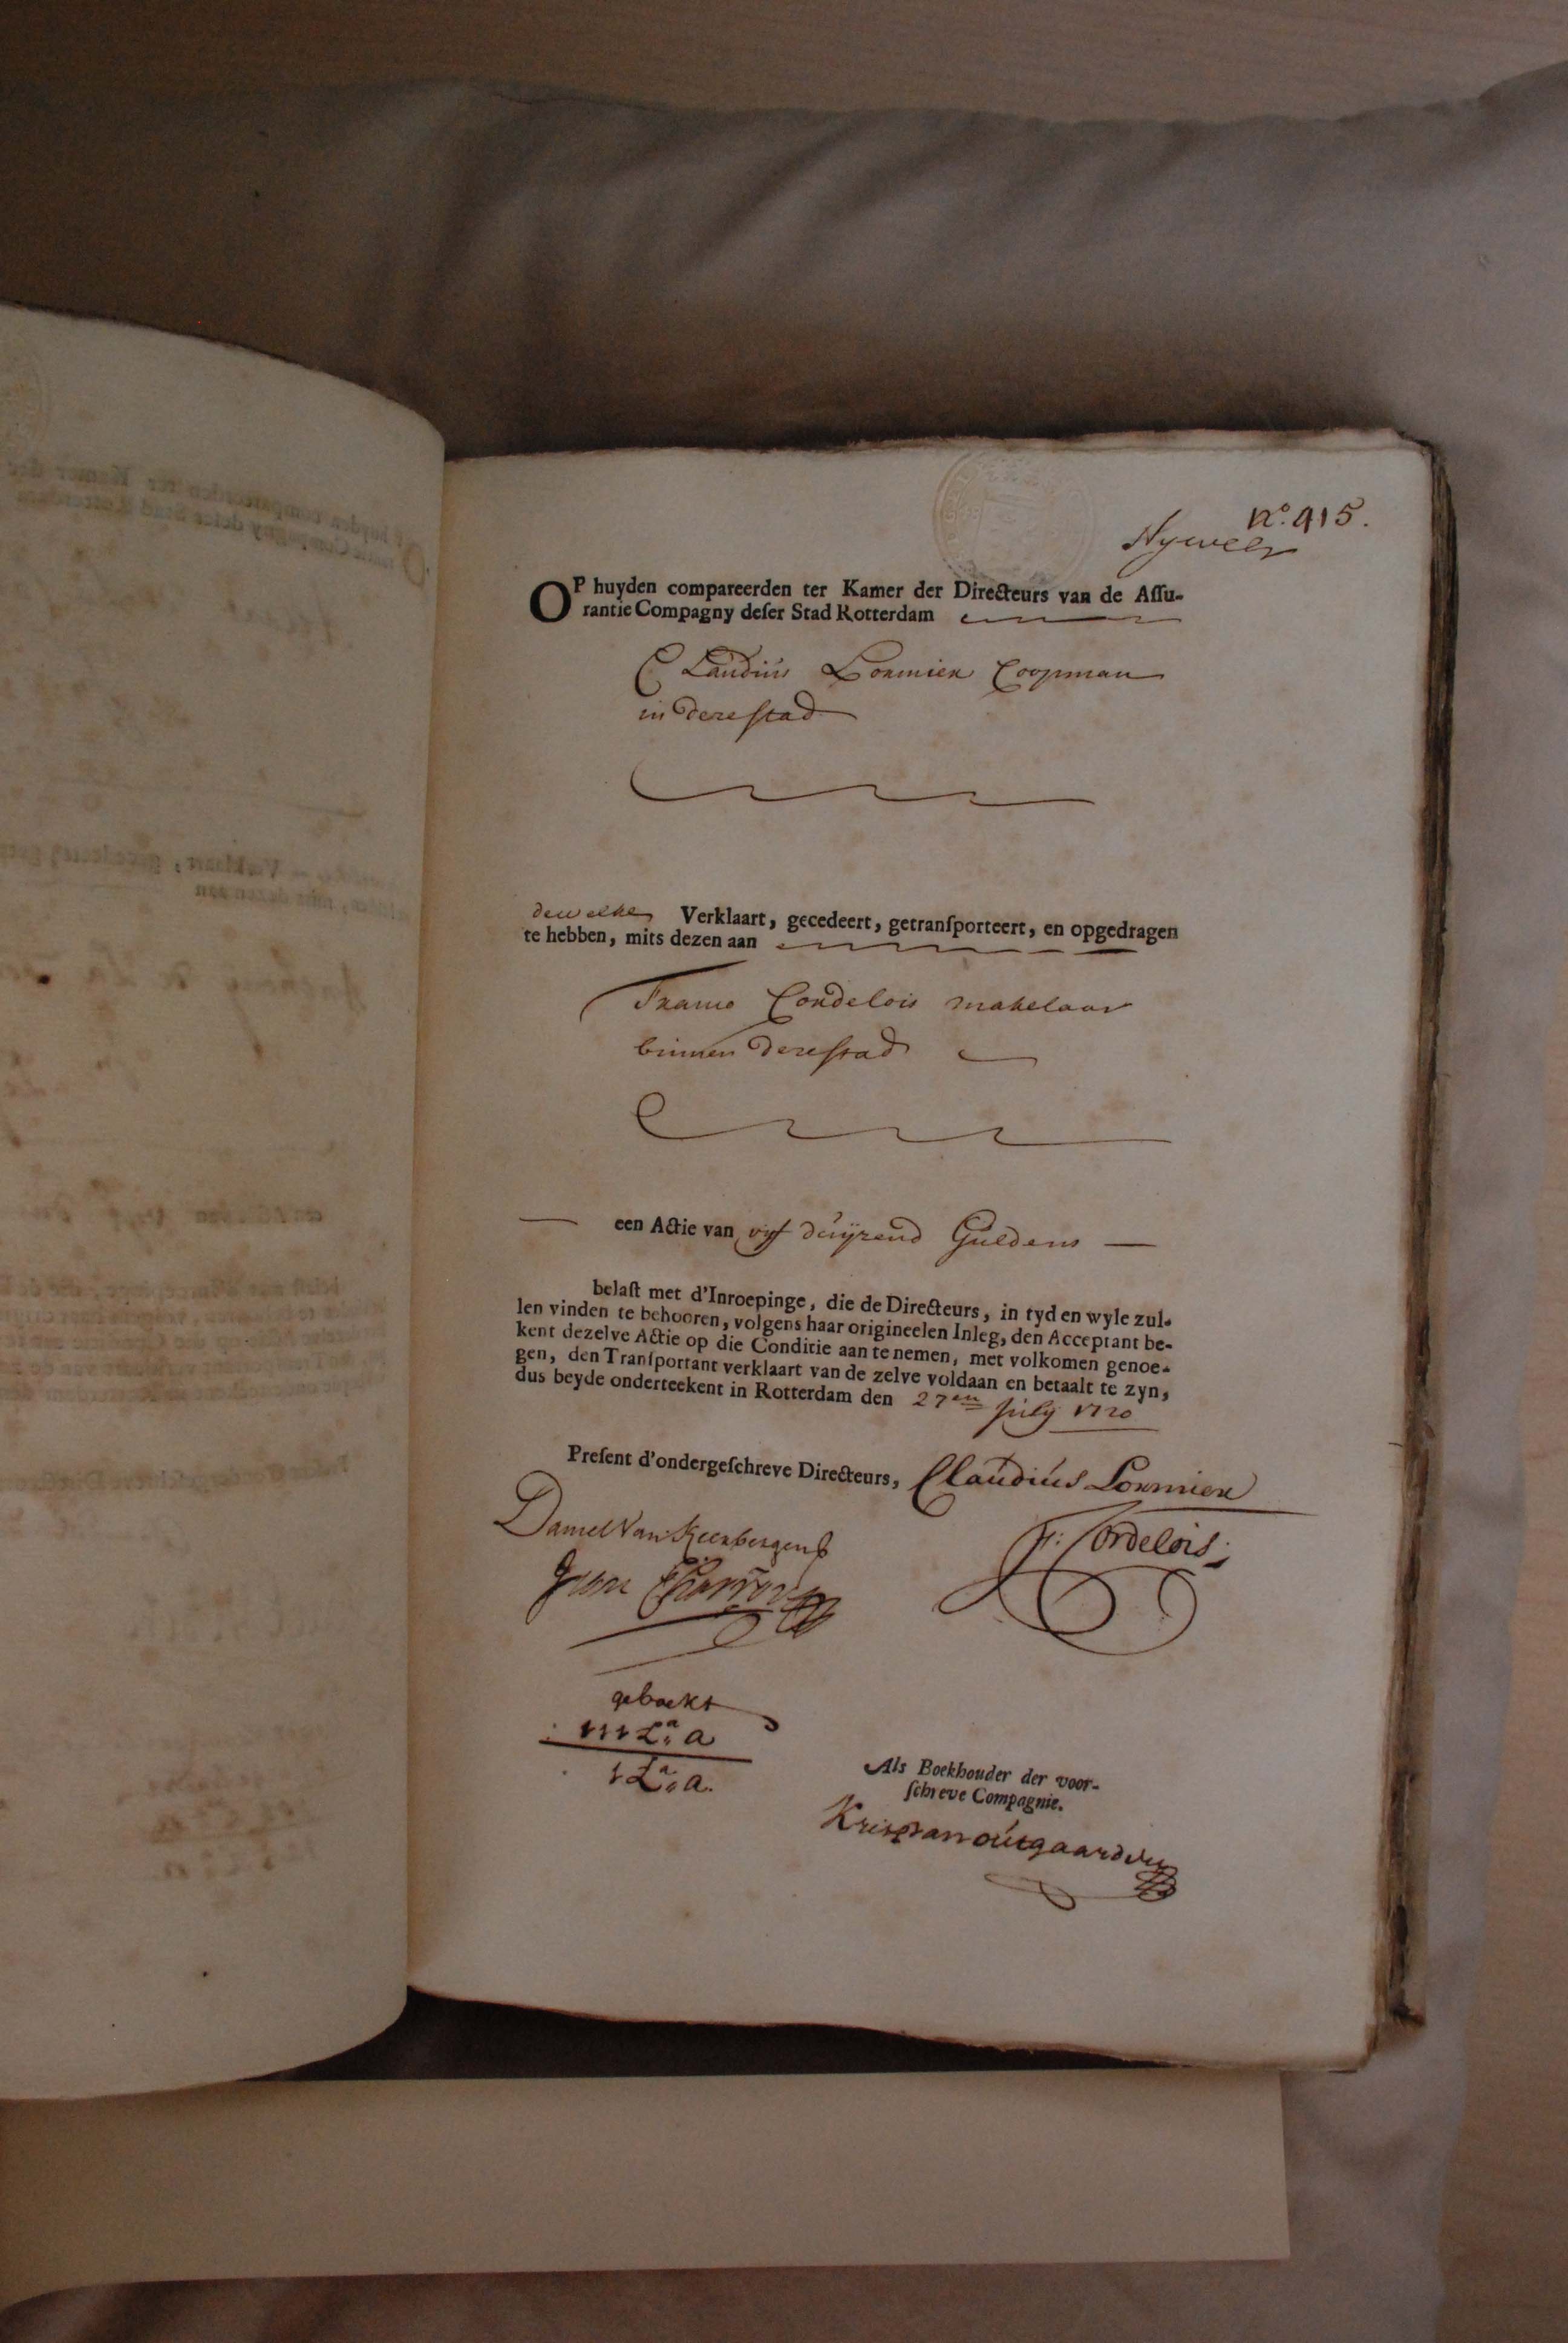 nº. 915.
OP huyden compareerden ter Kamer der Directeurs van de Aſſu-
rantie Compagny deſer Stad Rotterdam
Claudius Lormier Coopman
in dese stad
dewelke Verklaart, gecedeert, getranſporteert, en opgedragen
te hebben, mits dezen aan
Cordelois makelaar
binnen dese stad
een Actie van vyf duyzend Guldens
belaſt met d'Inroepinge, die de Directeurs, in tyd en wyle zul-
len vinden te behooren, volgens haar origineelen Inleg, den Acceptant be-
kent dezelve Actie op die Conditie aan te nemen, met volkomen genoe-
gen, den Tranſportant verklaart van de zelve voldaan en betaalt te zyn,
dus beyde onderteekent in Rotterdam den 27en july 1720
Preſent d'ondergeſchreve Directeurs, Claudius Lormier
Daniel Van
F: Cordelois
geboekt
111 La: a
1 La: a.
Als Boekhouder der voor-
ſchreve Compagnie.